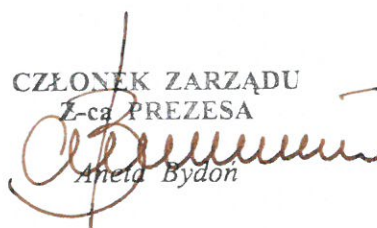 CZŁONEK ZARZĄDU
Z-ca PREZESA
Aneta Bydoń